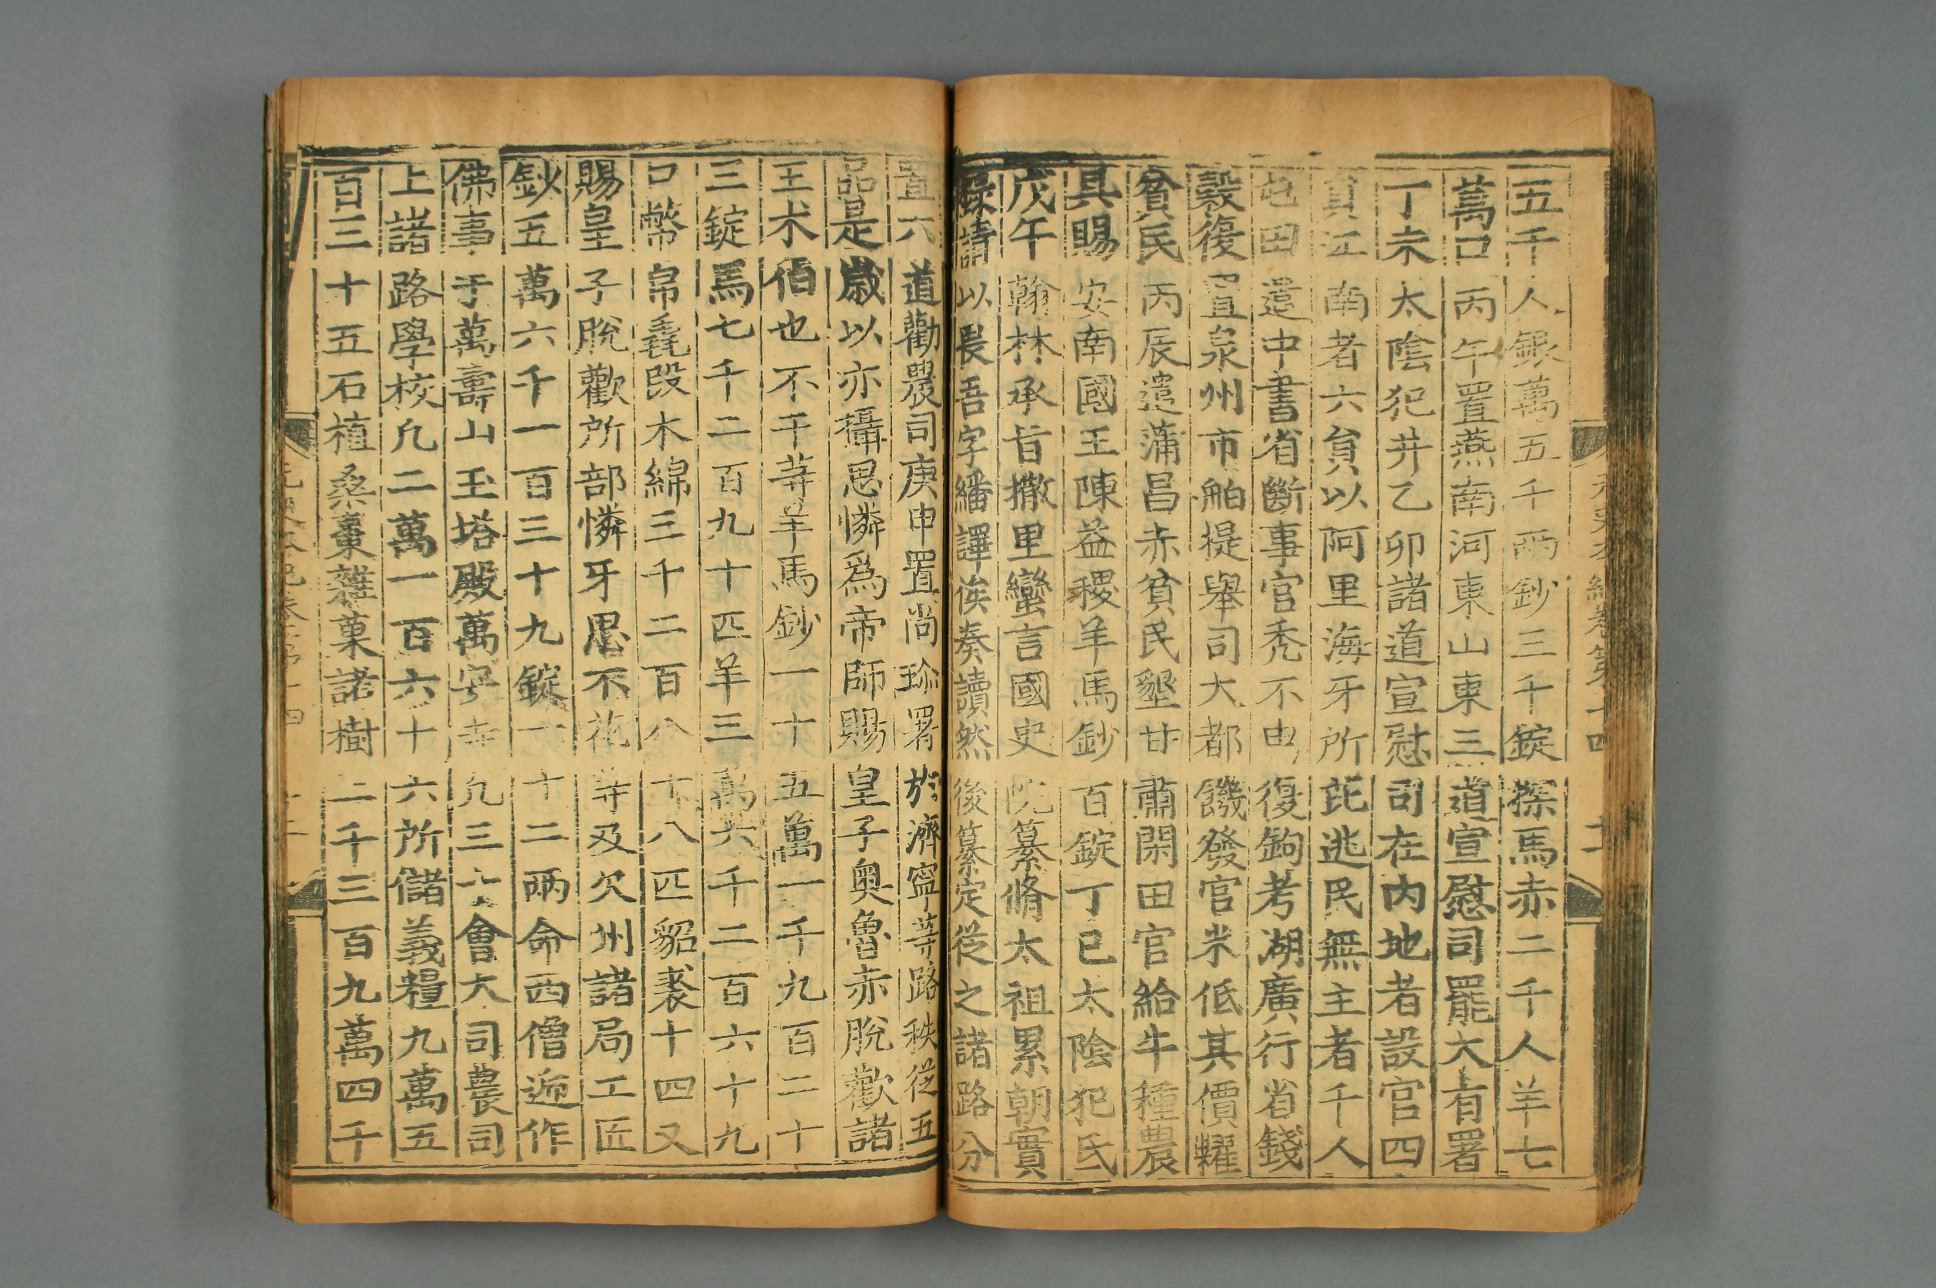 五千人銀萬五千兩鈔三千錠探馬赤二千人羊七
萬口丙午置燕南河東山東三道宣慰司罷大有署
丁未太陰犯井乙卯諸道宣慰司在內地者設官四
員江南者六員以阿里海牙所芘逃民無主者千人
屯田遣中書省斷事官禿不申復鉤考湖廣行省錢
穀復置泉州市舶提舉司大都饑發官米低其價糶
貧民丙辰遣蒲昌赤貧民墾甘肅閑田官給牛種農
具賜安南國王陳益稷羊馬鈔百錠丁巳太陰犯氐
戊午翰林承旨撒里蠻言國史院纂脩太祖累朝實
錄請以畏吾字繙譯俟奏讀然後纂定從之諸路分
置六道勸農司庚申置尚珍署於濟寧等路秩從五
品是歲以亦攝思憐爲帝師賜皇子奧魯赤脫歡諸
王朮伯也不干等羊馬鈔一十五萬一千九百二十
三錠馬七千二百九十匹羊三萬六千二百六十九
口幣帛毳段木綿三千二百八十八匹貂裘十四又
賜皇子脫歡所部憐牙思不花等及欠州諸局工匠
鈔五萬六千一百三十九錠一十二兩命西僧遞作
佛事于萬壽山玉塔殿萬安寺凡三十會大司農司
上諸路學校凡二萬一百六十六所儲義糧九萬五
百三十五石植桑棗雜菓諸樹二千三百九萬四千
元史本紀卷第十四 十二